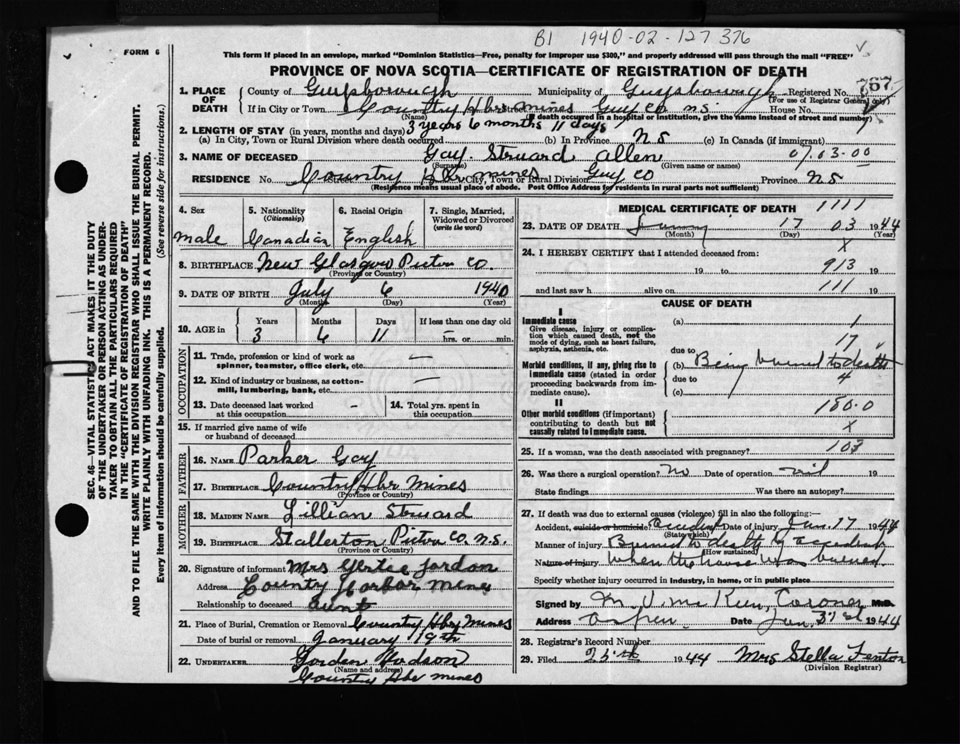 B1 1940-02-127376
FORM 6
This form if placed in an envelope, marked "Dominion Statistics—Free, penalty for improper use $300," and properly addressed will pass through the mail "FREE"
PROVINCE OF NOVA SCOTIA—CERTIFICATE OF REGISTRATION OF DEATH
1. PLACE OF DEATH
County of Guysborough Municipality of Guysborough Registered No.
(For use of Registrar General only)
If in City or Town Country Hbr mines Guy Co N.S. House No.
(Name) (If death occurred in a hospital or institution, give the name instead of street and number)
2. LENGTH OF STAY (in years, months and days) 3 years 6 months 11 days
(a) In City, Town or Rural Division where death occurred (b) In Province NS (c) In Canada (if immigrant)
3. NAME OF DECEASED Gay. Steward Allen 07.03-00
(Surname) (Given name or names)
RESIDENCE No. Country Hbr mines City, Town or Rural Division Guy Co Province NS
(Residence means usual place of abode. Post Office Address for residents in rural parts not sufficient)
4. Sex
male
5. Nationality (Citizenship)
Canadian
6. Racial Origin
English
7. Single, Married, Widowed or Divorced (write the word)
8. BIRTHPLACE New Glasgow Pictou Co.
(Province or Country)
9. DATE OF BIRTH July 6 1940
(Month) (Day) (Year)
10. AGE in Years Months Days If less than one day old
3 6 11 hrs. or min.
OCCUPATION
11. Trade, profession or kind of work as spinner, teamster, office clerk, etc. —
12. Kind of industry or business, as cotton-mill, lumbering, bank, etc. —
13. Date deceased last worked at this occupation - 14. Total yrs. spent in this occupation
15. If married give name of wife or husband of deceased
FATHER
16. NAME Parker Gay
17. BIRTHPLACE Country Hbr Mines
(Province or Country)
MOTHER
18. MAIDEN NAME Lillian Steward
19. BIRTHPLACE Stallerton Pictou Co. N.S.
(Province or Country)
20. Signature of informant Mrs Gertie Jordon
Address Country Harbor Mines
Relationship to deceased Aunt
21. Place of Burial, Cremation or Removal Country Hbr Mines
Date of burial or removal January 19th
22. UNDERTAKER Gorden Hudson
(Name and address)
Country Hbr mines
MEDICAL CERTIFICATE OF DEATH 1111
23. DATE OF DEATH 17 03 1944
(Month) (Day) (Year)
24. I HEREBY CERTIFY that I attended deceased from: X
19 to 913 19
and last saw h alive on 111 19
CAUSE OF DEATH
I
Immediate cause (a) 1
Give disease, injury or complication which caused death, not the mode of dying, such as heart failure, asphyxia, asthenia, etc.
17
due to
Morbid conditions, if any, giving rise to immediate cause (stated in order proceeding backwards from immediate cause).
(b) Being burned to death
due to 4
(c)
II 180.0
Other morbid conditions (if important) contributing to death but not causally related to immediate cause. X
25. If a woman, was the death associated with pregnancy? 103
26. Was there a surgical operation? No Date of operation nil 19
State findings Was there an autopsy?
27. If death was due to external causes (violence) fill in also the following:—
Accident, suicide or homicide? accident Date of injury Jan. 17 1944
(State which)
Manner of injury Burned to death by accident
(How sustained)
Nature of injury when the house was burned
Specify whether injury occurred in industry, in home, or in public place
Signed by Coroner M.D.
Address Aspen Date Jan. 31st 1944
28. Registrar's Record Number
29. Filed 1944 Mrs Stella Fenton
(Division Registrar)
SEC. 46—VITAL STATISTICS ACT MAKES IT THE DUTY
OF THE UNDERTAKER OR PERSON ACTING AS UNDER-
TAKER TO OBTAIN ALL THE PARTICULARS REQUIRED
IN THE "CERTIFICATE OF REGISTRATION OF DEATH"
AND TO FILE THE SAME WITH THE DIVISION REGISTRAR WHO SHALL ISSUE THE BURIAL PERMIT.
WRITE PLAINLY WITH UNFADING INK. THIS IS A PERMANENT RECORD.
Every item of information should be carefully supplied. (See reverse side for instructions.)